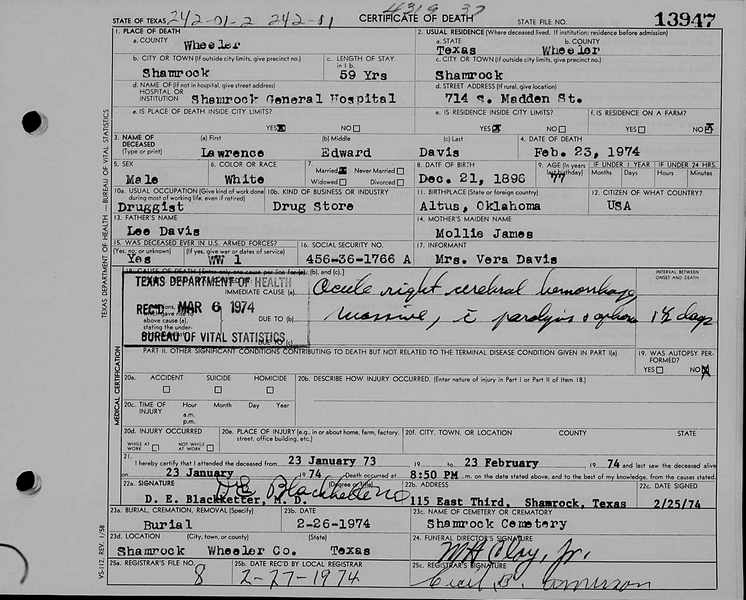 242-01-2 242-51 4319 37
STATE OF TEXAS CERTIFICATE OF DEATH STATE FILE NO. 13947
1. PLACE OF DEATH 2. USUAL RESIDENCE (Where deceased lived. If institution: residence before admission)
a. COUNTY Wheeler a. STATE Texas b. COUNTY Wheeler
b. CITY OR TOWN (If outside city limits, give precinct no.) Shamrock c. LENGTH OF STAY in 1 b. 59 Yrs c. CITY OR TOWN (If outside city limits, give precinct no.) Shamrock
d. NAME OF (If not in hospital, give street address) HOSPITAL OR INSTITUTION Shamrock General Hospital d. STREET ADDRESS (If rural, give location) 714 S. Madden St.
e. IS PLACE OF DEATH INSIDE CITY LIMITS? e. IS RESIDENCE INSIDE CITY LIMITS? f. IS RESIDENCE ON A FARM?
YES X NO YES X NO YES NO X
3. NAME OF DECEASED (Type or print) (a) First Lawrence (b) Middle Edward (c) Last Davis 4. DATE OF DEATH Feb. 23, 1974
5. SEX Male 6. COLOR OR RACE White 7. Married X Never Married Widowed Divorced 8. DATE OF BIRTH Dec. 21, 1896 9. AGE (In years last birthday) 77 IF UNDER 1 YEAR Months Days IF UNDER 24 HRS. Hours Minutes
10a. USUAL OCCUPATION (Give kind of work done during most of working life, even if retired) Druggist 10b. KIND OF BUSINESS OR INDUSTRY Drug Store 11. BIRTHPLACE (State or foreign country) Altus, Oklahoma 12. CITIZEN OF WHAT COUNTRY? USA
13. FATHER'S NAME Lee Davis 14. MOTHER'S MAIDEN NAME Mollie James
15. WAS DECEASED EVER IN U.S. ARMED FORCES? (Yes, no, or unknown) Yes (If yes, give war or dates of service) WW 1 16. SOCIAL SECURITY NO. 456-36-1766 A 17. INFORMANT Mrs. Vera Davis
18. CAUSE OF DEATH (Enter only one cause per line for (a), (b), and (c).) INTERVAL BETWEEN ONSET AND DEATH
TEXAS DEPARTMENT OF HEALTH
IMMEDIATE CAUSE (a) Acute right cerebral hemorrhage,
REC'D MAR 6 1974
DUE TO (b) massive, 1½ days
gave rise to above cause (a), stating the under-
BUREAU OF VITAL STATISTICS
DUE TO (c)
PART II. OTHER SIGNIFICANT CONDITIONS CONTRIBUTING TO DEATH BUT NOT RELATED TO THE TERMINAL DISEASE CONDITION GIVEN IN PART I(a) 19. WAS AUTOPSY PERFORMED?
YES NO X
20a. ACCIDENT SUICIDE HOMICIDE 20b. DESCRIBE HOW INJURY OCCURRED. (Enter nature of injury in Part I or Part II of Item 18.)
20c. TIME OF INJURY Hour a.m. p.m. Month Day Year
20d. INJURY OCCURRED WHILE AT WORK NOT WHILE AT WORK 20e. PLACE OF INJURY (e.g., in or about home, farm, factory, street, office building, etc.) 20f. CITY, TOWN, OR LOCATION COUNTY STATE
21. I hereby certify that I attended the deceased from 23 January 73 19 to 23 February 19 74 and last saw the deceased alive
on 23 January 19 74 Death occurred at 8:50 PM .m. on the date stated above, and to the best of my knowledge, from the causes stated.
22a. SIGNATURE (Degree or title) D. E. Blackketter, M. D. 22b. ADDRESS 115 East Third, Shamrock, Texas 22c. DATE SIGNED 2/25/74
23a. BURIAL, CREMATION, REMOVAL (Specify) Burial 23b. DATE 2-26-1974 23c. NAME OF CEMETERY OR CREMATORY Shamrock Cemetery
23d. LOCATION (City, town, or county) (State) Shamrock Wheeler Co. Texas 24. FUNERAL DIRECTOR'S SIGNATURE
25a. REGISTRAR'S FILE NO. 8 25b. DATE REC'D BY LOCAL REGISTRAR 2-27-1974 25c. REGISTRAR'S SIGNATURE
TEXAS DEPARTMENT OF HEALTH — BUREAU OF VITAL STATISTICS
MEDICAL CERTIFICATION
VS-112, REV. 1/58